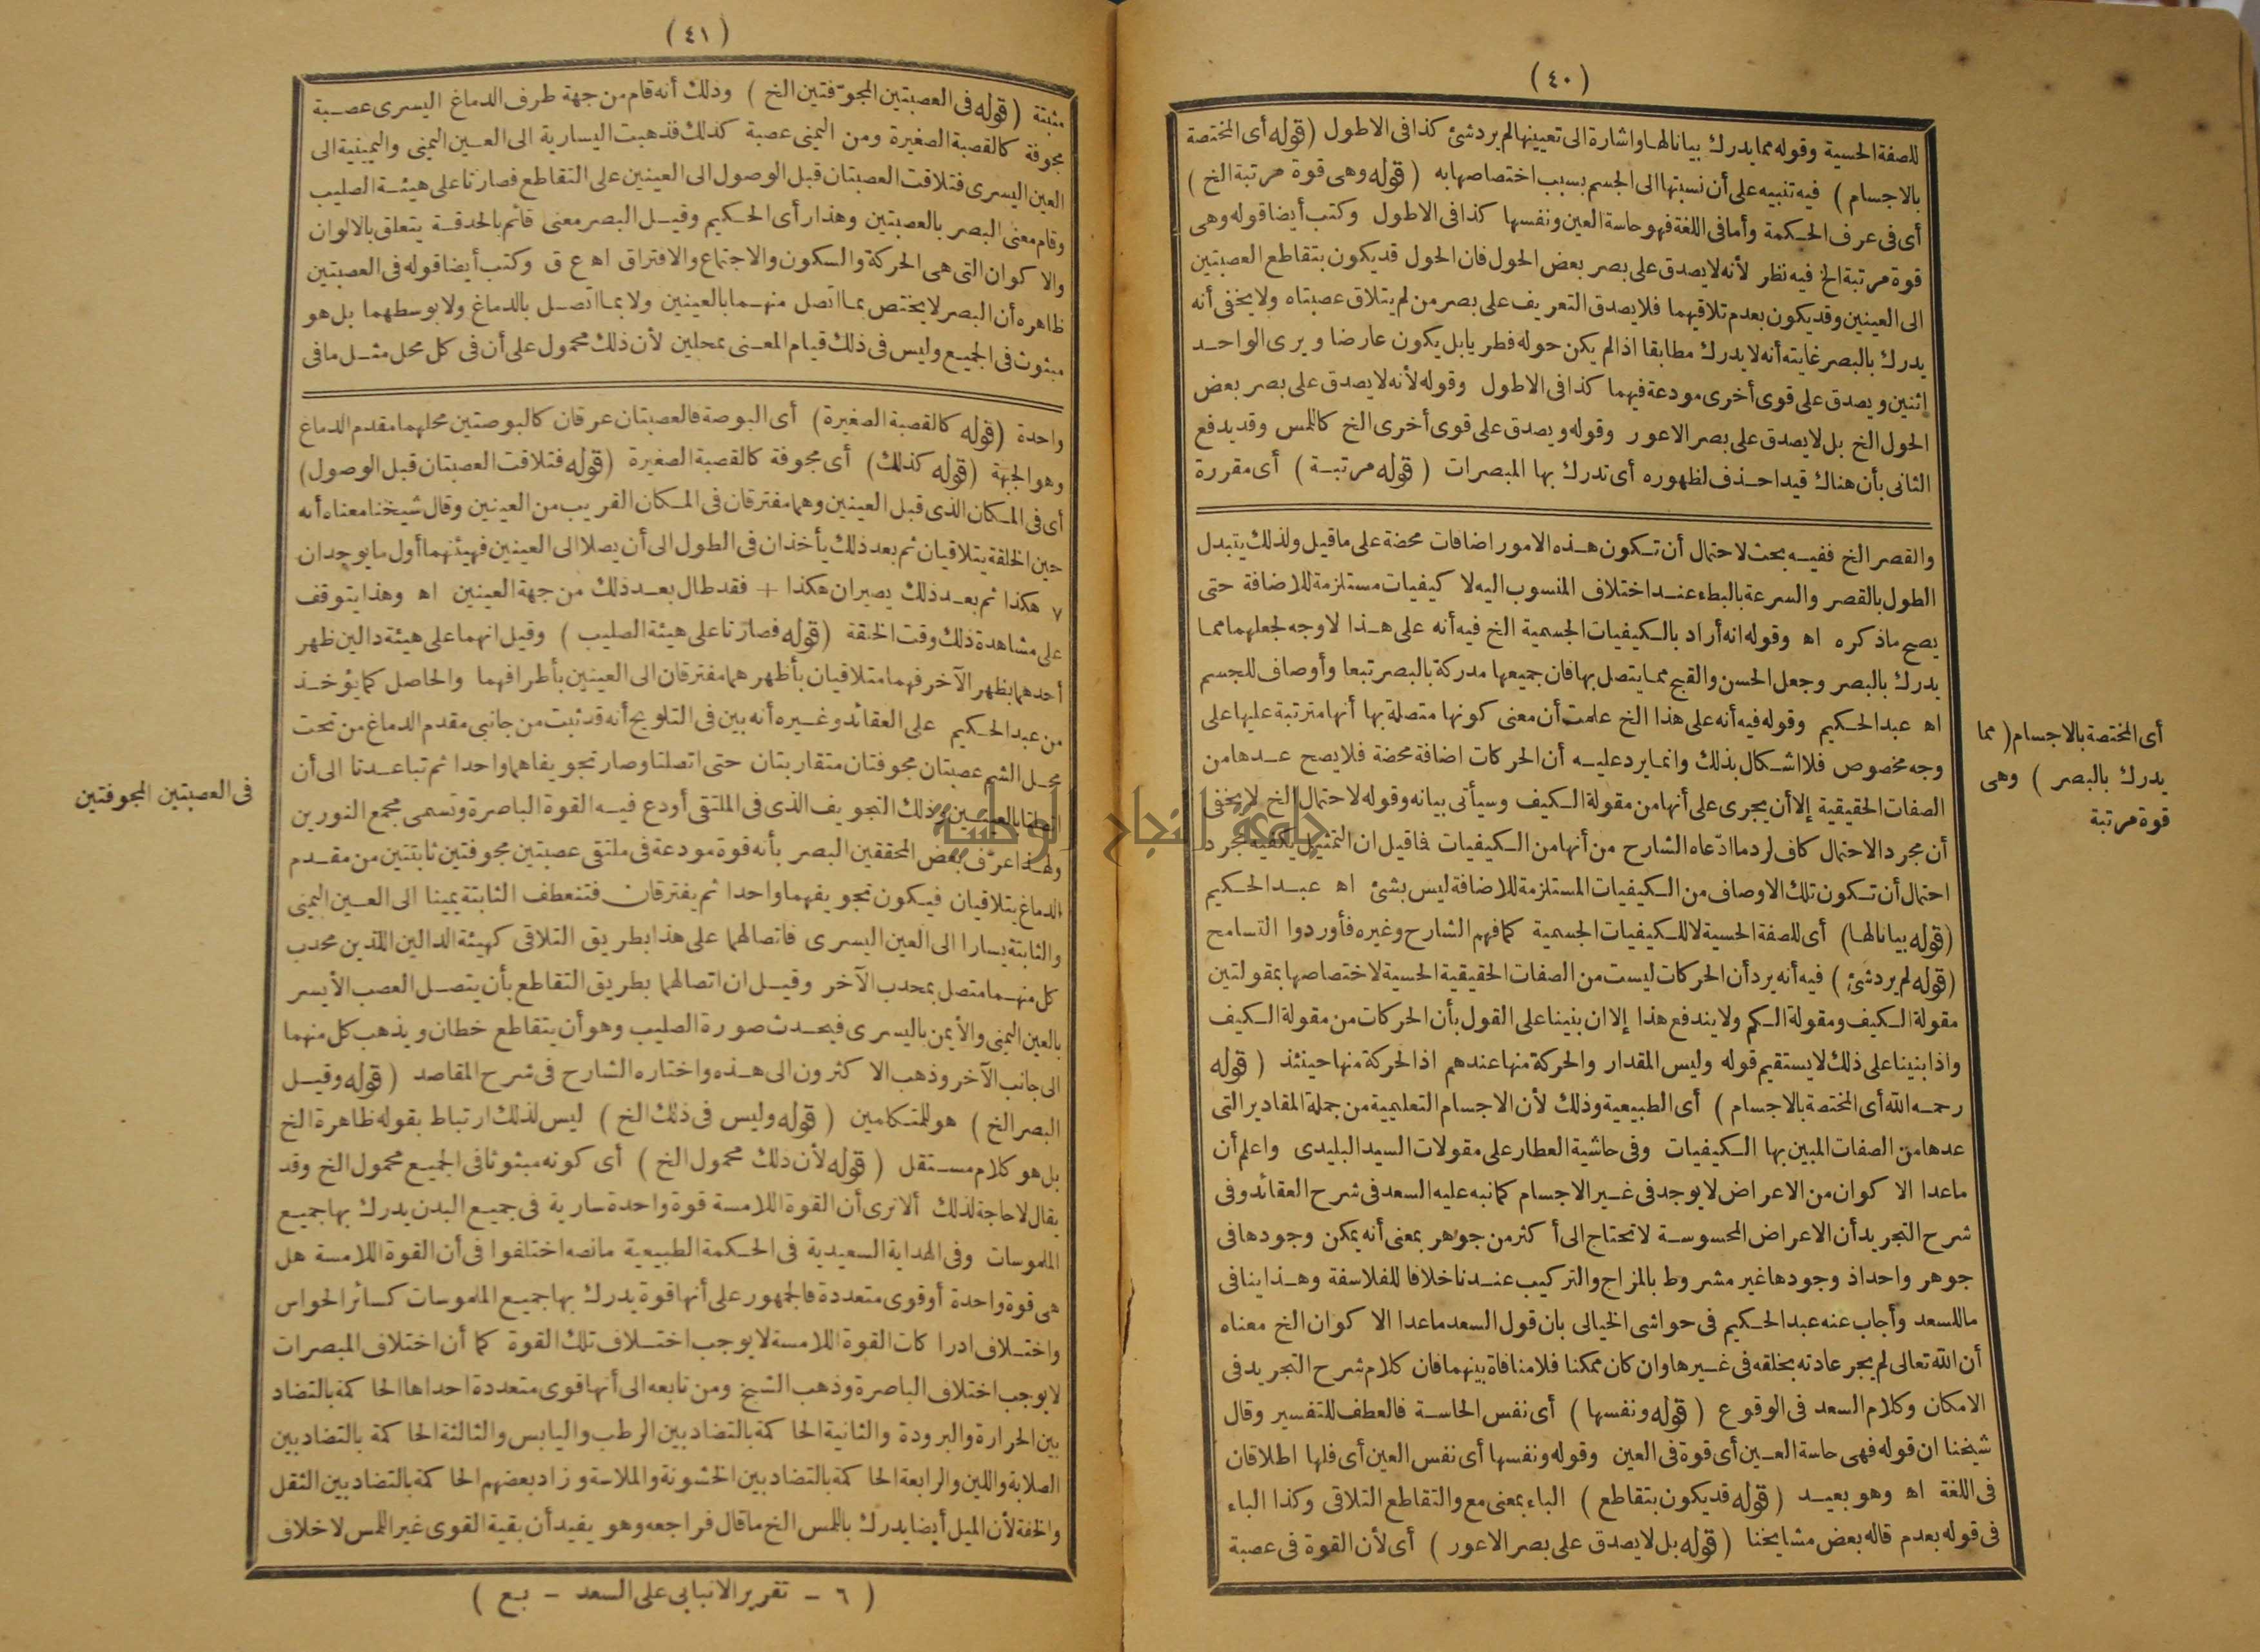 (٤٠)
للصفة الحسية وقوله مما يدرك بيانا لها واشارة الى تعيينها لم يرد شئ كذا فى الاطول (قوله أى المختصة
بالاجسام) فيه تنبيه على أن نسبتها الى الجسم بسبب اختصاصها به (قوله وهى قوة مرتبة الخ)
أى فى عرف الحكمة وأما فى اللغة فهو حاسة العين ونفسها كذا فى الاطول وكتب أيضا قوله وهى
قوة مرتبة الخ فيه نظر لأنه لا يصدق على بصر بعض الحول فان الحول قد يكون بتقاطع العصبتين
الى العينين وقد يكون بعدم تلاقيهما فلا يصدق التعريف على بصر من لم يتلاق عصبتاه ولا يخفى أنه
يدرك بالبصر غايته أنه لا يدرك مطابقا اذا لم يكن حوله فطريا بل يكون عارضا ويرى الواحد
اثنين ويصدق على قوى أخرى مودعة فيهما كذا فى الاطول وقوله لأنه لا يصدق على بصر بعض
الحول الخ بل لا يصدق على بصر الاعور وقوله ويصدق على قوى أخرى الخ كاللمس وقد يدفع
الثانى بأن هناك قيدا حذف لظهوره أى تدرك بها المبصرات (قوله مرتبة) أى مقررة
والقصر الخ ففيه بحث لاحتمال أن تكون هذه الامور اضافات محضة على ما قيل ولذلك يتبدل
الطول بالقصر والسرعة بالبطء عند اختلاف المنسوب اليه لا كيفيات مستلزمة للاضافة حتى
يصح ما ذكره اه وقوله انه أراد بالكيفيات الجسمية الخ فيه أنه على هذا لا وجه لجعلهما مما
يدرك بالبصر وجعل الحسن والقبح مما يتصل بها فان جميعها مدركة بالبصر تبعا وأوصاف للجسم
اه عبد الحكيم وقوله فيه أنه على هذا الخ علمت أن معنى كونها متصلة بها أنها مترتبة عليها على
وجه مخصوص فلا اشكال بذلك وانما يرد عليه أن الحركات اضافة محضة فلا يصح عدها من
الصفات الحقيقية إلا أن يجرى على أنها من مقولة الكيف وسيأتى بيانه وقوله لاحتمال الخ لا يخفى
أن مجرد الاحتمال كاف لرد ما ادّعاه الشارح من أنها من الكيفيات فما قيل ان التمثيل يكفيه مجرد
احتمال أن تكون تلك الاوصاف من الكيفيات المستلزمة للاضافة ليس بشئ اه عبد الحكيم
(قوله بيانا لها) أى للصفة الحسية لا للكيفيات الجسمية كما فهم الشارح وغيره فأوردوا التسامح
(قوله لم يرد شئ) فيه أنه يرد أن الحركات ليست من الصفات الحقيقية الحسية لاختصاصها بمقولتين
مقولة الكيف ومقولة الكم ولا يندفع هذا إلا ان بنينا على القول بأن الحركات من مقولة الكيف
واذا بنينا على ذلك لا يستقيم قوله وليس المقدار والحركة منها عندهم اذ الحركة منها حينئذ (قوله
رحمه الله أى المختصة بالاجسام) أى الطبيعية وذلك لأن الاجسام التعليمية من جملة المقادير التى
عدها من الصفات المبين بها الكيفيات وفى حاشية العطار على مقولات السيد البليدى واعلم أن
ماعدا الاكوان من الاعراض لا يوجد فى غير الاجسام كما نبه عليه السعد فى شرح العقائد وفى
شرح التجريد أن الاعراض المحسوسة لا تحتاج الى أكثر من جوهر بمعنى أنه يمكن وجودها فى
جوهر واحد اذ وجودها غير مشروط بالمزاج والتركيب عندنا خلافا للفلاسفة وهذا ينافى
ما للسعد وأجاب عنه عبد الحكيم فى حواشى الخيالى بان قول السعد ماعدا الاكوان الخ معناه
أن الله تعالى لم يجر عادته بخلقه فى غيرها وان كان ممكنا فلا منافاة بينهما فان كلام شرح التجريد فى
الامكان وكلام السعد فى الوقوع (قوله ونفسها) أى نفس الحاسة فالعطف للتفسير وقال
شيخنا ان قوله فهى حاسة العين أى قوة فى العين وقوله ونفسها أى نفس العين أى فلها اطلاقان
فى اللغة اه وهو بعيد (قوله قد يكون بتقاطع) الباء بمعنى مع والتقاطع التلاقى وكذا الباء
فى قوله بعدم قاله بعض مشايخنا (قوله بل لا يصدق على بصر الاعور) أى لأن القوة فى عصبة
أى المختصة بالاجسام (مما
يدرك بالبصر) وهى
قوة مرتبة
(٤١)
مثبتة (قوله فى العصبتين المجوّفتين الخ) وذلك أنه قام من جهة طرف الدماغ اليسرى عصبة
مجوفة كالقصبة الصغيرة ومن اليمنى عصبة كذلك فذهبت اليسارية الى العين اليمنى واليمينية الى
العين اليسرى فتلاقت العصبتان قبل الوصول الى العينين على التقاطع فصارتا على هيئة الصليب
وقام معنى البصر بالعصبتين وهذا رأى الحكيم وقيل البصر معنى قائم بالحدقة يتعلق بالالوان
والاكوان التى هى الحركة والسكون والاجتماع والافتراق اه ع ق وكتب أيضا قوله فى العصبتين
ظاهره أن البصر لا يختص بما اتصل منهما بالعينين ولا بما اتصل بالدماغ ولا بوسطهما بل هو
مبثوث فى الجميع وليس فى ذلك قيام المعنى بمحلين لأن ذلك محمول على أن فى كل محل مثل ما فى
واحدة (قوله كالقصبة الصغيرة) أى البوصة فالعصبتان عرقان كالبوصتين محلهما مقدم الدماغ
وهو الجبهة (قوله كذلك) أى مجوفة كالقصبة الصغيرة (قوله فتلاقت العصبتان قبل الوصول)
أى فى المكان الذى قبل العينين وهما مفترقان فى المكان القريب من العينين وقال شيخنا معناه أنه
حين الخلقة يتلاقيان ثم بعد ذلك يأخذان فى الطول الى أن يصلا الى العينين فهيئتهما أول ما يوجدان
٧ هكذا ثم بعد ذلك يصيران هكذا + فقد طال بعد ذلك من جهة العينين اه وهذا يتوقف
على مشاهدة ذلك وقت الخلقة (قوله فصارتا على هيئة الصليب) وقيل انهما على هيئة دالين ظهر
أحدهما بظهر الآخر فهما متلاقيان بأظهرهما مفترقان الى العينين بأطرافهما والحاصل كما يؤخذ
من عبد الحكيم على العقائد وغيره أنه بين فى التلويح أنه قد نبت من جانبى مقدم الدماغ من تحت
محل الشم عصبتان مجوفتان متقاربتان حتى اتصلتا وصار تجويفاهما واحدا ثم تباعدتا الى أن
اتصلتا بالعينين وذلك التجويف الذى فى الملتقى أودع فيه القوة الباصرة وتسمى مجمع النورين
ولهذا عرّف بعض المحققين البصر بأنه قوة مودعة فى ملتقى عصبتين مجوفتين نابتتين من مقدم
الدماغ يتلاقيان فيكون تجويفهما واحدا ثم يفترقان فتنعطف النابتة يمينا الى العين اليمنى
والنابتة يسارا الى العين اليسرى فاتصالهما على هذا بطريق التلاقى كهيئة الدالين اللذين محدب
كل منهما متصل بمحدب الآخر وقيل ان اتصالهما بطريق التقاطع بأن يتصل العصب الأيسر
بالعين اليمنى والأيمن باليسرى فيحدث صورة الصليب وهو أن يتقاطع خطان ويذهب كل منهما
الى جانب الآخر وذهب الاكثرون الى هذه واختاره الشارح فى شرح المقاصد (قوله وقيل
البصر الخ) هو للمتكلمين (قوله وليس فى ذلك الخ) ليس لذلك ارتباط بقوله ظاهرة الخ
بل هو كلام مستقل (قوله لأن ذلك محمول الخ) أى كونه مبثوثا فى الجميع محمول الخ وقد
يقال لا حاجة لذلك ألا ترى أن القوة اللامسة قوة واحدة سارية فى جميع البدن يدرك بها جميع
الملموسات وفى الهداية السعيدية فى الحكمة الطبيعية ما نصه اختلفوا فى أن القوة اللامسة هل
هى قوة واحدة أو قوى متعددة فالجمهور على أنها قوة يدرك بها جميع الملموسات كسائر الحواس
واختلاف ادراكات القوة اللامسة لا يوجب اختلاف تلك القوة كما أن اختلاف المبصرات
لا يوجب اختلاف الباصرة وذهب الشيخ ومن تابعه الى أنها قوى متعددة احداها الحاكمة بالتضاد
بين الحرارة والبرودة والثانية الحاكمة بالتضاد بين الرطب واليابس والثالثة الحاكمة بالتضاد بين
الصلابة واللين والرابعة الحاكمة بالتضاد بين الخشونة والملاسة وزاد بعضهم الحاكمة بالتضاد بين الثقل
والخفة لأن الميل أيضا يدرك باللمس الخ ما قال فراجعه وهو يفيد أن بقية القوى غير اللمس لا خلاف
فى العصبتين المجوفتين
(٦ - تقرير الانبابى على السعد - بع)
جامعة النجاح الوطنية